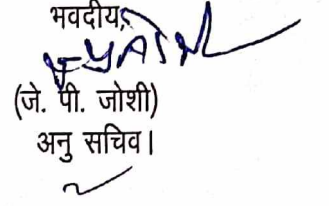 भवदीय,
(जे. पी. जोशी)
अनु सचिव।